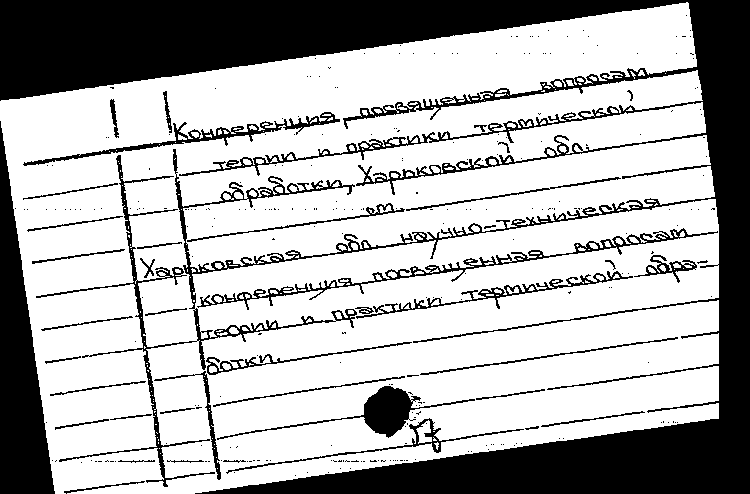 Конференция, посвященная вопросам
теории и практики термической
обработки, Харьковской обл.
см.
Харьковская обл. научно-техническая
конференция, посвященная вопросам
теории и практики термической обра-
ботки.